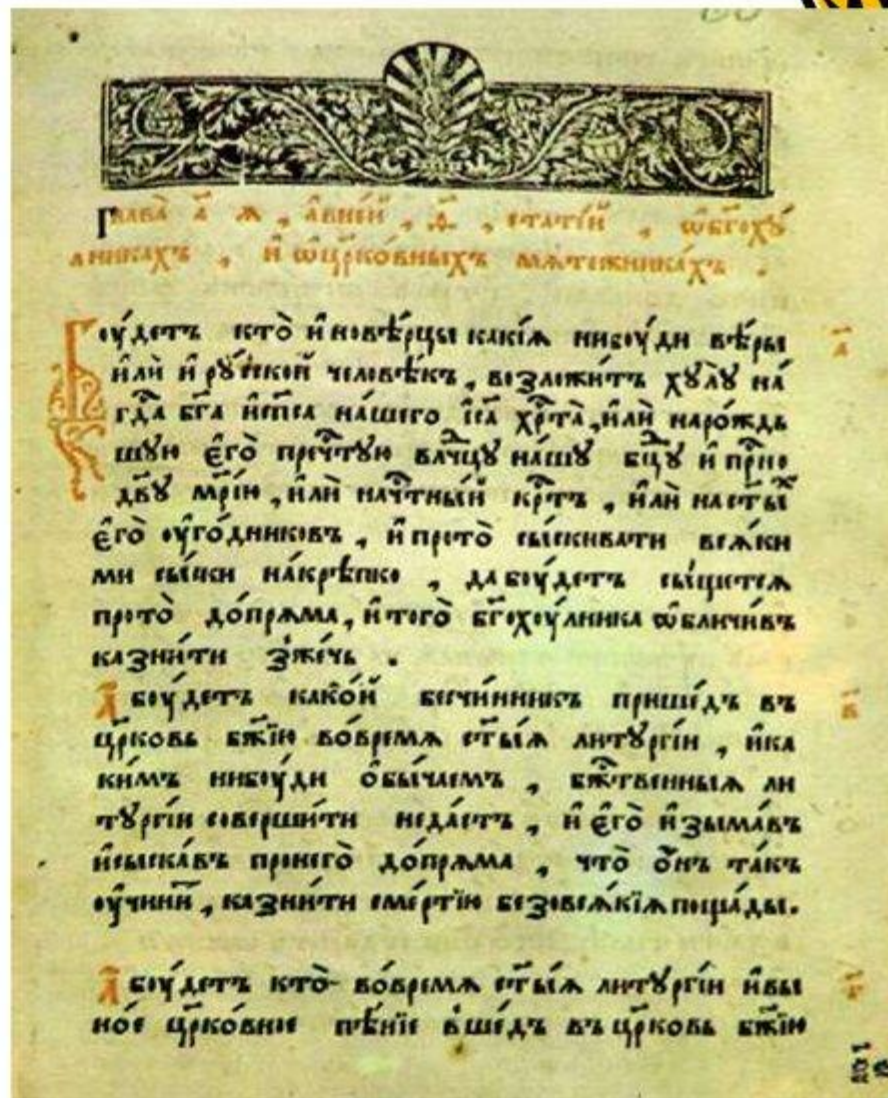 Глава̀ а҃ ѧ , а҆ в̾не́й , ѳ҃ , стате́й , ѡ҆ бг҃охꙋ́
лникахъ , и҆ ѡ҆ цр҃ко́вныхъ мѧте́жникахъ .
Бꙋ́детъ кто̀ и҆новѣ́рцы какі́ѧ нибꙋ́ди вѣ́ры а҃
и҆лѝ и҆ рꙋ́сской человѣ́къ , возложи́тъ хꙋлꙋ̀ на́
гдⷭ҇а бг҃а и҆ сп҃са на́шего і҆с҃а хрⷭ҇та̀ , и҆лѝ наро́ждь
шꙋю є҆го̀ пречⷭ҇тꙋю влⷣчцꙋ на́шꙋ бцⷣꙋ и҆ прⷭ҇но
дв҃ꙋ мр҃і́ю , и҆лѝ начⷭ҇тны́й крⷭ҇тъ , и҆лѝ на ст҃ы́хъ
є҆го̀ ᲂу҆го́дниковъ , и҆ прото̀ сы́скивати всѧ́ки
ми сы́ски на́крѣпко , да бꙋ́детъ сы́щетсѧ
прото̀ до́прѧма , и҆ того̀ бг҃охꙋ́лника ѡ҆бличи́въ
казни́ти зже́чь .
А҆ бꙋ́детъ како́й безчи́нникъ прише́дъ въ в҃
цр҃ковь бж҃їю во́времѧ ст҃ы́ѧ литꙋргі́и , и҆ ка
ки́мъ нибꙋ́ди ѻ҆бы́чаемъ , бжⷭ҇твенныѧ ли
тꙋргі́и соверши́ти неда́стъ , и҆ є҆го̀ и҆зыма́въ
и҆ сыска́въ пронего̀ до́прѧма , что̀ ѻ҆́нъ та́къ
ᲂу҆чини́тъ , казни́ти сме́ртїю безовсѧ́кїѧ поща́ды .
А҆ бꙋ́детъ кто̀ во́времѧ ст҃ы́ѧ литꙋргі́и и҆ вы г҃
но́е цр҃ко́вное пѣ́нїе вше́дъ въ цр҃ковь бж҃їю